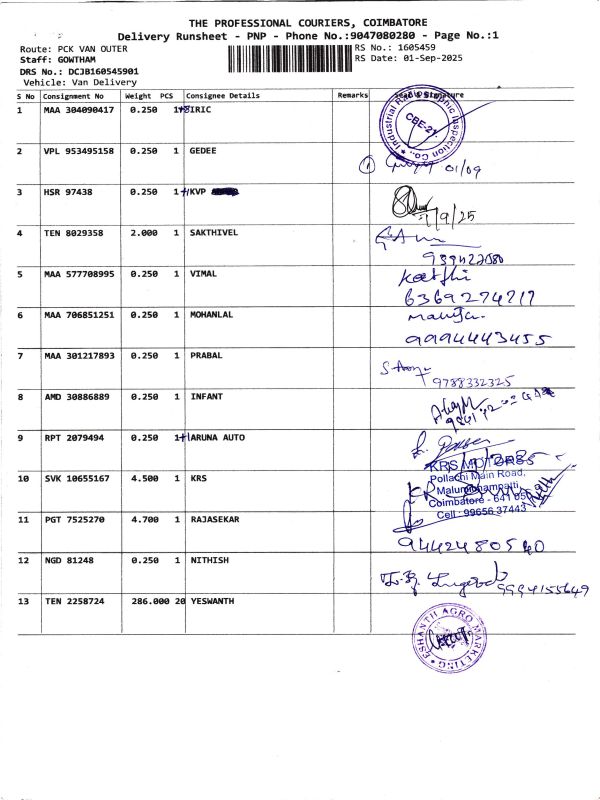 THE PROFESSIONAL COURIERS, COIMBATORE
Delivery Runsheet - PNP - Phone No.:9047080280 - Page No.:1
Route: PCK VAN OUTER
RS No.: 1605459
Staff: GOWTHAM
RS Date: 01-Sep-2025
DRS No.: DCJB160545901
Vehicle: Van Delivery
S No Consignment No Weight PCS Consignee Details Remarks Seal & Signature
1 MAA 304090417 0.250 1+8 IRIC
Industrial Radiographic Inspection Co.,
CBE-21.
2 VPL 953495158 0.250 1 GEDEE
1 01/09
3 HSR 97438 0.250 1+1 KVP
1/9/25
4 TEN 8029358 2.000 1 SAKTHIVEL
5 MAA 577708995 0.250 1 VIMAL
6369274717
6 MAA 706851251 0.250 1 MOHANLAL
9994443455
7 MAA 301217893 0.250 1 PRABAL
9788332325
8 AMD 30886889 0.250 1 INFANT
9 RPT 2079494 0.250 1+1 ARUNA AUTO
10 SVK 10655167 4.500 1 KRS
KRS MOTORS
Pollachi Main Road,
Malumichampatti,
Coimbatore - 641 050
Cell : 99656 37443
11 PGT 7525270 4.700 1 RAJASEKAR
9442480540
12 NGD 81248 0.250 1 NITHISH
9994155649
13 TEN 2258724 286.000 20 YESWANTH
ESHANTH AGRO MARKETING